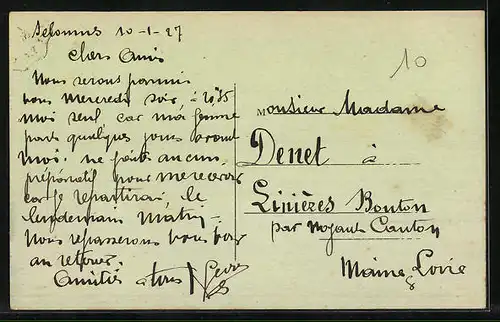 10-1-27
Chers Amis
Nous serons parmi
vous Mercredi soir, à
moi seul car ma femme
part quelques jours avant
moi. ne faites aucun
préparatif pour mercredi
car je repartirai, le
lendemain Matin.
Nous repasserons vous voir
au retour.
Amitiés à tous
10
Monsieur Madame
Denet à
Linières Bouton
par Noyant Canton
Maine & Loire